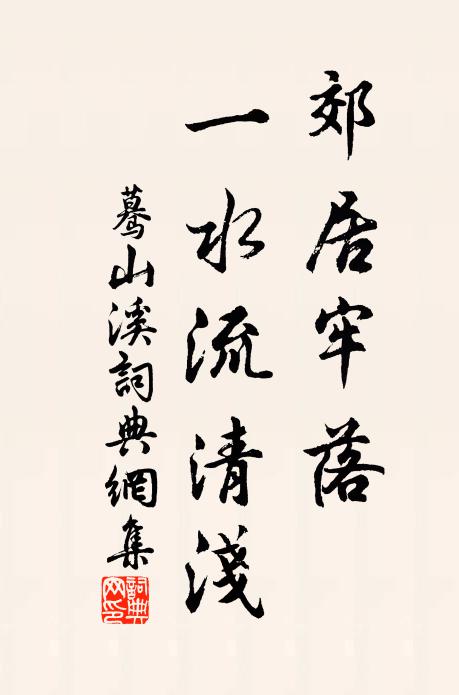 郊居牢落
一水流清淺
驀山溪詞典網集
詞典網印